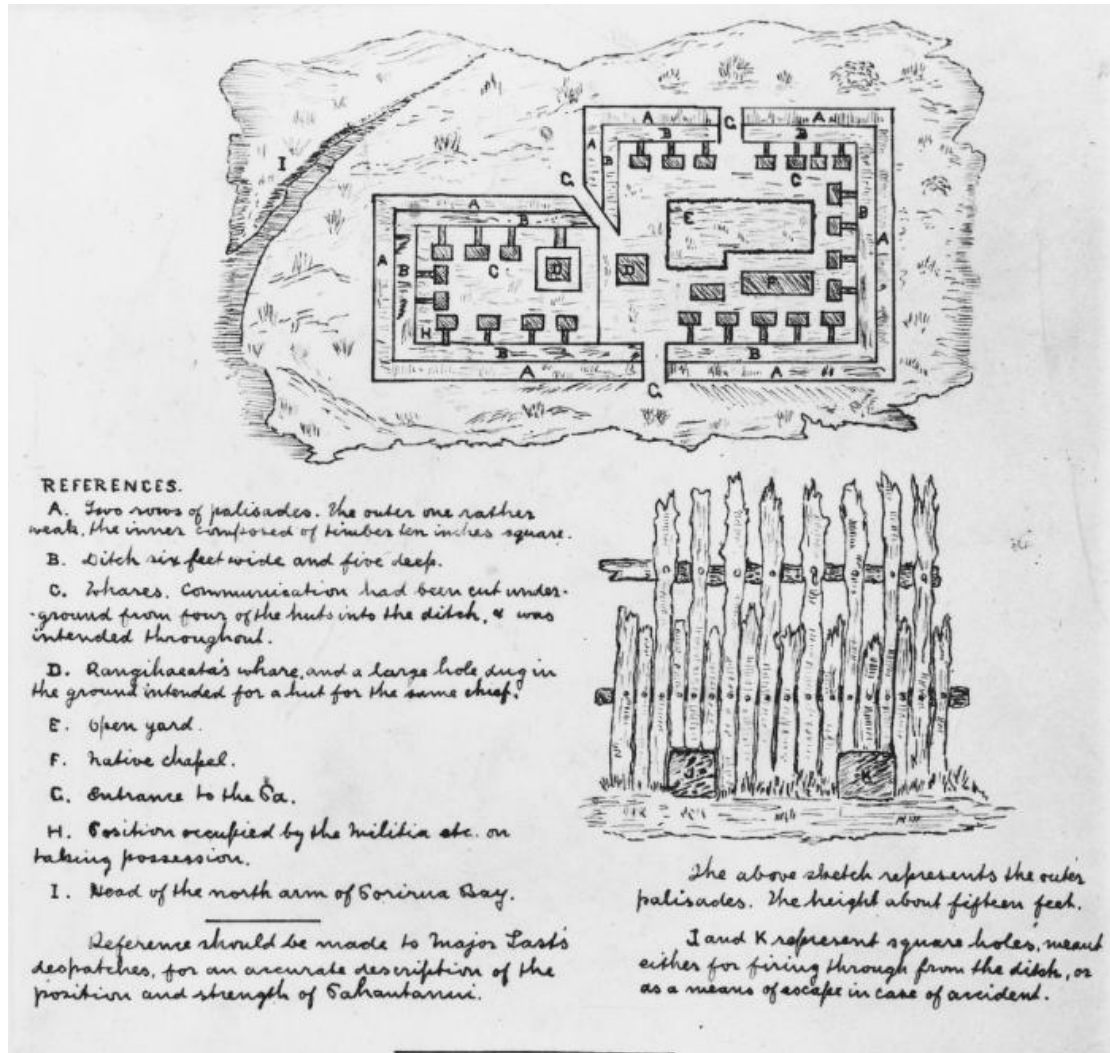 A G A
B B
A B C
G
I E B
A B A
A B C D D F
H
B B
A A
G
REFERENCES.
A. Two rows of palisades. The outer one rather
weak, the inner composed of timber ten inches square.
B. Ditch six feet wide and five deep.
C. Whares. Communication had been cut under-
-ground from four of the huts into the ditch, & was
intended throughout.
D. Rangihaeata's whare, and a large hole dug in
the ground intended for a hut for the same chief.
E. Open yard.
F. Native chapel.
G. Entrance to the Pa.
H. Position occupied by the Militia etc. on
taking possession.
I. Head of the north arm of Porirua Bay.
Reference should be made to Major Last's
despatches, for an accurate description of the
position and strength of Pahautanui.
J K
The above sketch represents the outer
palisades. The height about fifteen feet.
J and K represent square holes, meant
either for firing through from the ditch, or
as a means of escape in case of accident.